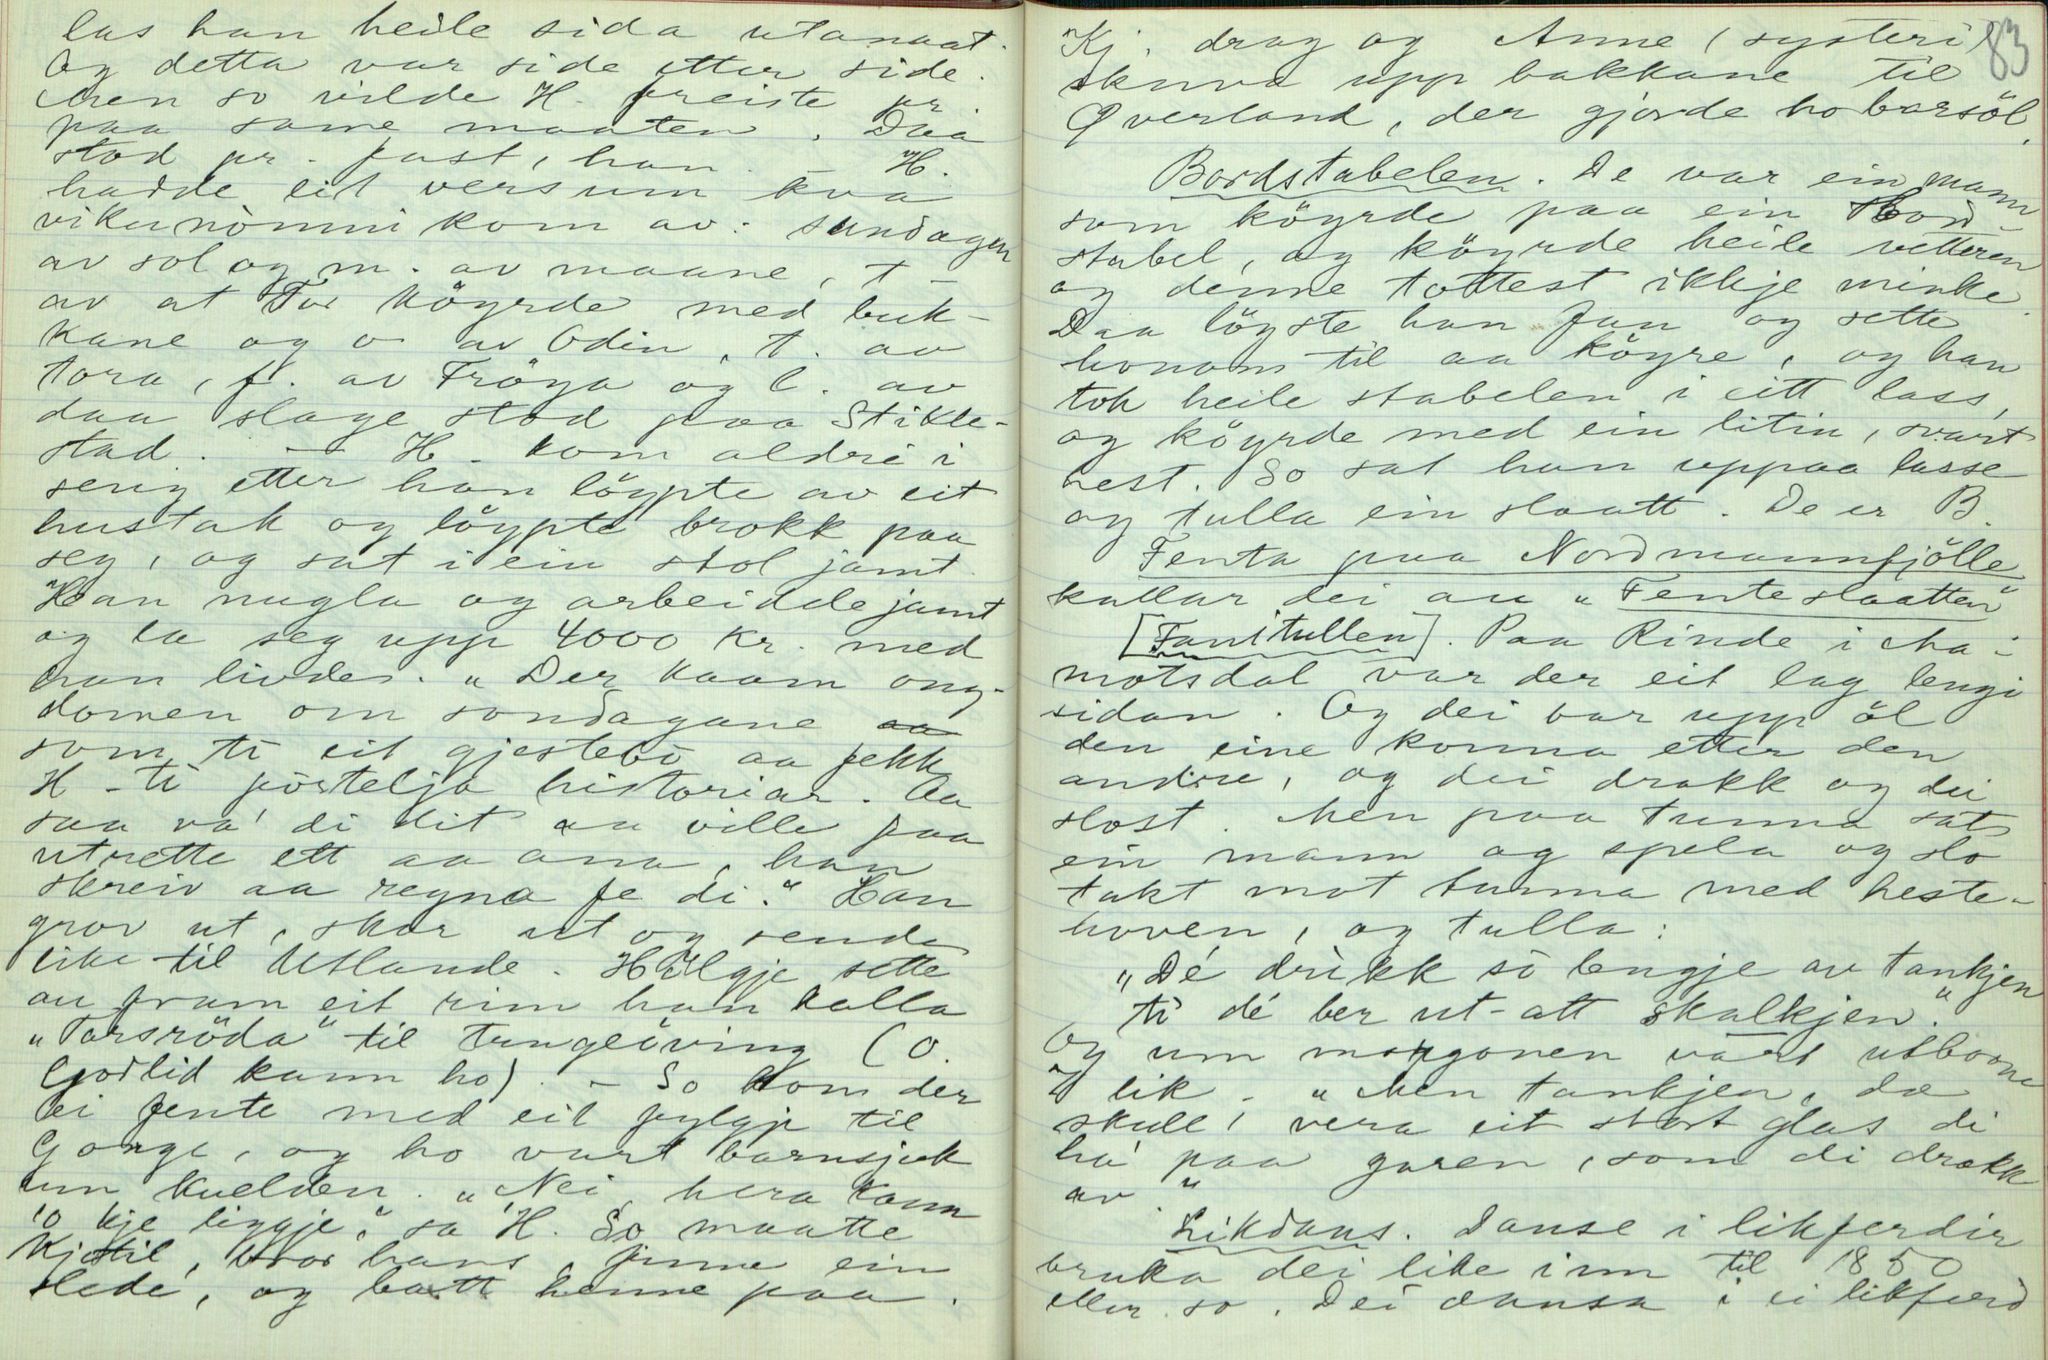 las han heile sida utanaat.
Og detta var side etter side.
Men so vilde H. freiste pr.
paa same maaten. Daa
stod pr. fast, han. - H.
hadde eit vers um kva
vikunònni kom av: sundagen
av sol og m. av maane, t -
av at Tor köyrde med buk-
kane og o- av Odin, t. av
Tora, f. av Fröya og l. av
daa slage stod paa Stikle-
stad. - - H - kom aldri i
seng etter han löypte av eit
hustak og löypte brokk paa
seg, og sat i ein stol jamt.
Han nugla og arbeidde jamt
og la seg upp 4000 kr. med
han livde. „Der kaam ong-
domen om sondagane aa
som ti eit gjestebò aa fekk
H - ti pörtelja historiar. Aa
saa va' di dit aa ville faa
utrette ett aa ana, han
skreiv aa regna fe di." Han
grov ut, skar ut og sende
like til Utlande. Helgje sette
au fram eit rim han kalla
„Torsröda" til Trugeöving (O.
Godlid kann ho). - So kom der
ei fente med eit fylgje til
Gorge, og ho vart barnsjuk
um kvelden. „Nei, hera kann
'o kje liggje," sa H. So maatte
Kjetil, bror hans, finne ein
slede, og batt henne paa.
83
Kj. drog og Anne (systeri)
skuva upp bakkane til
Øverland, der gjorde ho barsöl.
Bordstabelen. De var ein mann
som köyrde paa ein bord-
stabel, og köyrde heile vetteren
og denne tottest ikkje minke.
Daa löyste han Fan og sette
honom til aa köyre, og han
tok heile stabelen i eitt lass,
og köyrde med ein litin, svart
hest. So sat han uppaa lasse
og tulla ein slaatt. De er B.
Fenta paa Nordmannfjölle
kallar dei au „Fenteslaatten"
[Fanitullen]. Paa Rinde i Aa-
motsdal var der eit lag lengi
sidan. Og dei bar upp öl
den eine konna etter den
andre, og dei drakk og dei
slost. Men paa tunna sat
ein mann og spela og slo
takt mot tunna med heste-
hoven, og tulla:
„Dé drikk sò lengje av tankjen
ti dé ber ut-att skalkjen."
Og um morgonen vart utborne
7 lik. - „Men tankjen, dæ
skull' vera eit stort glas di
ha' paa garen, som di drakk
av."
Likdans. Danse i likferdir
bruka dei like inn til 1850
eller so. Dei dansa i ei likferd